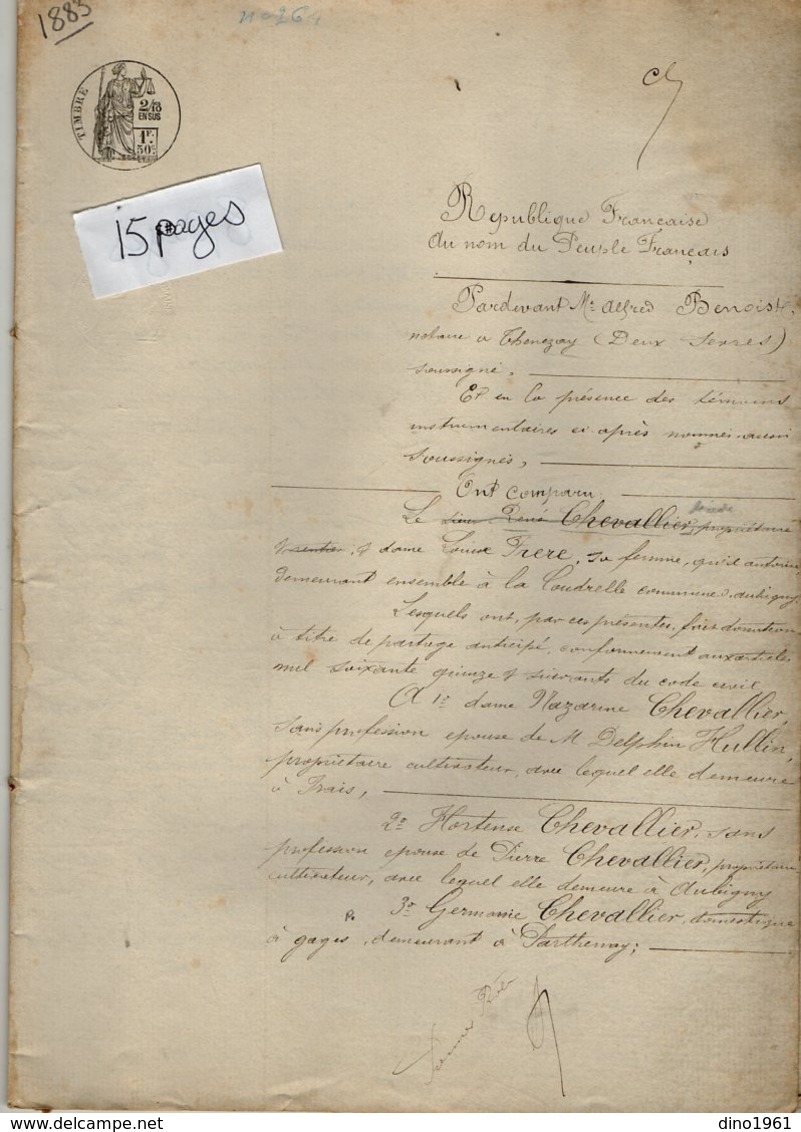 1883
TIMBRE
2/10
EN SUS
1F.
50c.
15 pages
République Française
Au nom du Peuple Français
Pardevant Me Alfred Benoist,
notaire à Thenezay (Deux Sevres)
soussigné.
Et en la présence des témoins
instrumentaires ci après nommés aussi
soussignés,
Ont comparu
Le sieur René Chevallier, propriétaire
& dame Louise Frere, sa femme, qu'il autorise
demeurant ensemble à la Coudrelle commune d'aubigny.
Lesquels ont, par ces présentes, fait donation
à titre de partage anticipé, conformement aux articles
mil soixante quinze & suivants du code civil
A 1o dame Nazarine Chevallier,
sans profession épouse de M Delphin Hullin,
propriétaire cultivateur, avec lequel elle demeure
à Irais,
2o Hortense Chevallier, sans
profession épouse de Pierre Chevallier, propriétaire
cultivateur, avec lequel elle demeure à Aubigny
3o Germanie Chevallier, domestique
à gages, demeurant à Parthenay;
dino1961